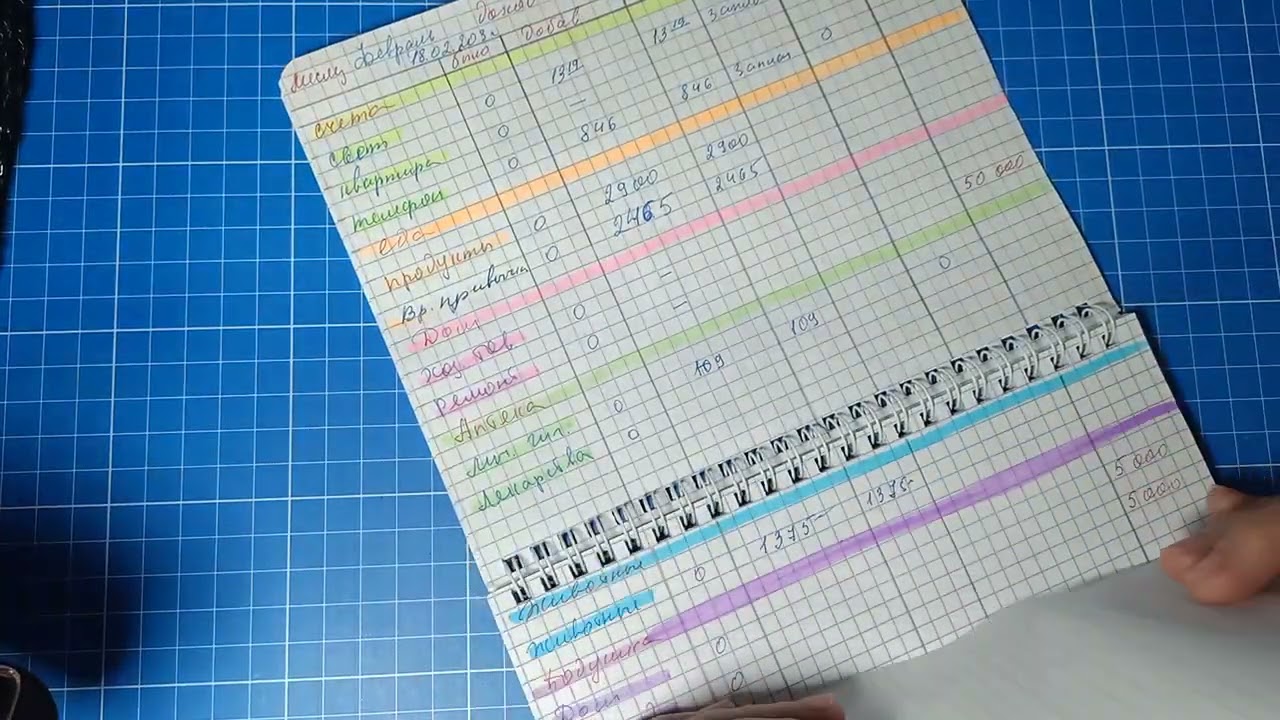 февраль
добав
счета 1319
свет 0 1319
квартира 0 —
телефон 0 846 846 0
еда
продукты 0 2900 2900
Вр. привычки 0 2465 2465
Дом 50 000
хоз. тов 0 —
ремонт 0 —
Аптека 0
лич. гиг. 0 109 109
лекарства 0
животные
животные 0 1375- 1375-
подушка 5 000
Дом 0 5 000
0